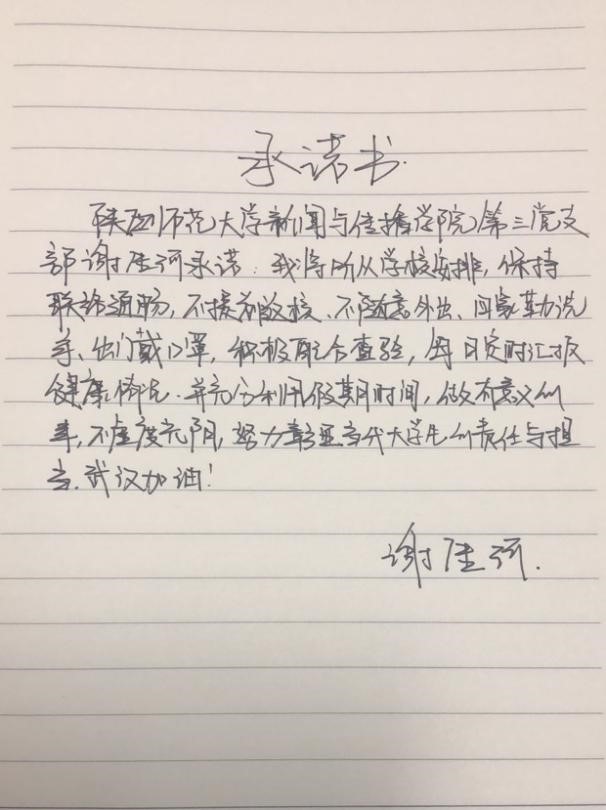 承诺书
陕西师范大学新闻与传播学院第三党支
部谢佳河承诺：我将听从学校安排，保持
联络通畅，不提前返校、不随意外出、回家勤洗
手、出门戴口罩，积极配合查验，每日定时汇报
健康情况．并充分利用假期时间，做有意义的
事，不虚度光阴，努力彰显当代大学生的责任与担
当．武汉加油！
谢 河．